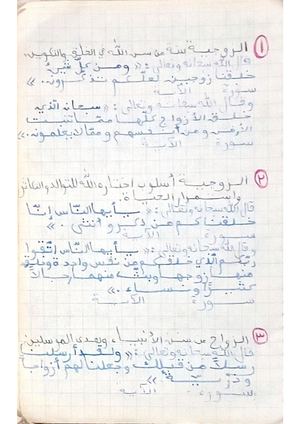 ١ الزوجية سنة من سنن الله في الخلق والتكوين:
قال الله سبحانه وتعالى: «ومن كل شيئ
خلقنا زوجين لعلكم تذكرون. »
سورة الآية
وقال الله سبحانه وتعالى: «سبحان الذي
خلق الأزواج كلها مما تنبت
الأرض ومن أنفسهم ومما لا يعلمون. »
سورة الآية
٢ الزوجية أسلوب اختاره الله للتوالد والتكاثر
واستمرار الحياة:
قال الله سبحانه وتعالى: «يأيها الناس إنا
خلقناكم من ذكر وأنثى. »
سورة الآية
وقال الله سبحانه وتعالى: «يأيها الناس اتقوا
ربكم الذي خلقكم من نفس واحدة وخلق
منها زوجها وبث منهما رجالا
كثيرا ونساء. »
سورة الآية
٣ الزواج من سنن الأنبياء وهدى المرسلين
قال الله سبحانه وتعالى: «ولقد أرسلنا
رسلا من قبلك وجعلنا لهم أزواجا
وذرية »
سورة الآية